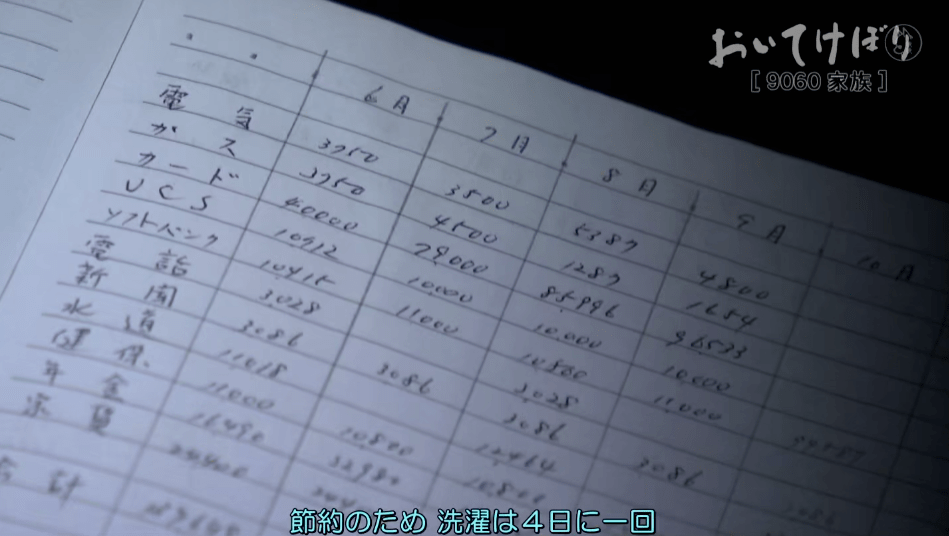 おいてけぼり
[ 9060 家族 ]
6月 7月 8月 9月 10月
電気 3750 3500 5387 4800
ガス 3750 4500 1287 1654
カード 60000 79000 85996 96533
UCS 10912 10000 10000 10000
ソフトバンク 10415 11000 10500 11000
電話 3028 3028
新聞 3086 3086 3086 3086
水道 11018 12464
健保 11000 10800 10800
年金 16490 32980
家賃 24400
合計
節約のため 洗濯は4日に一回